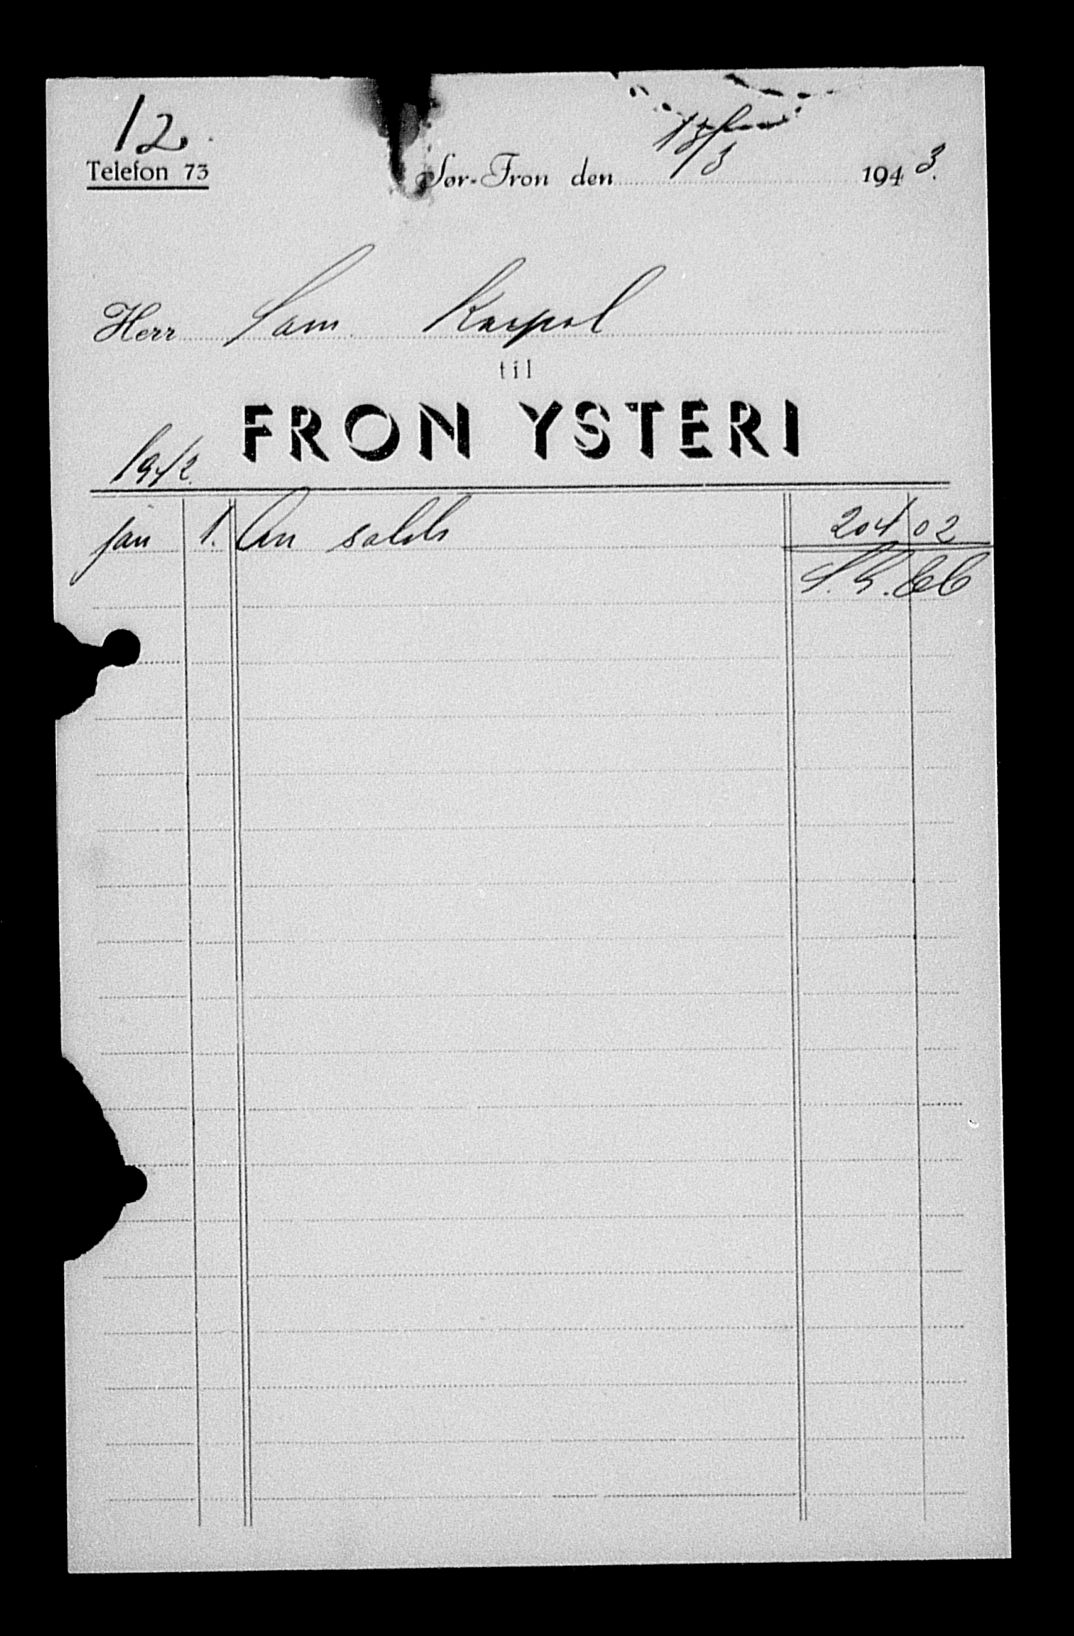 12
Telefon 73
Sør-Fron den 18/3 1943.
Herr Sam Karpol
til
FRON YSTERI
1942
jan 1. An saldo 204 02